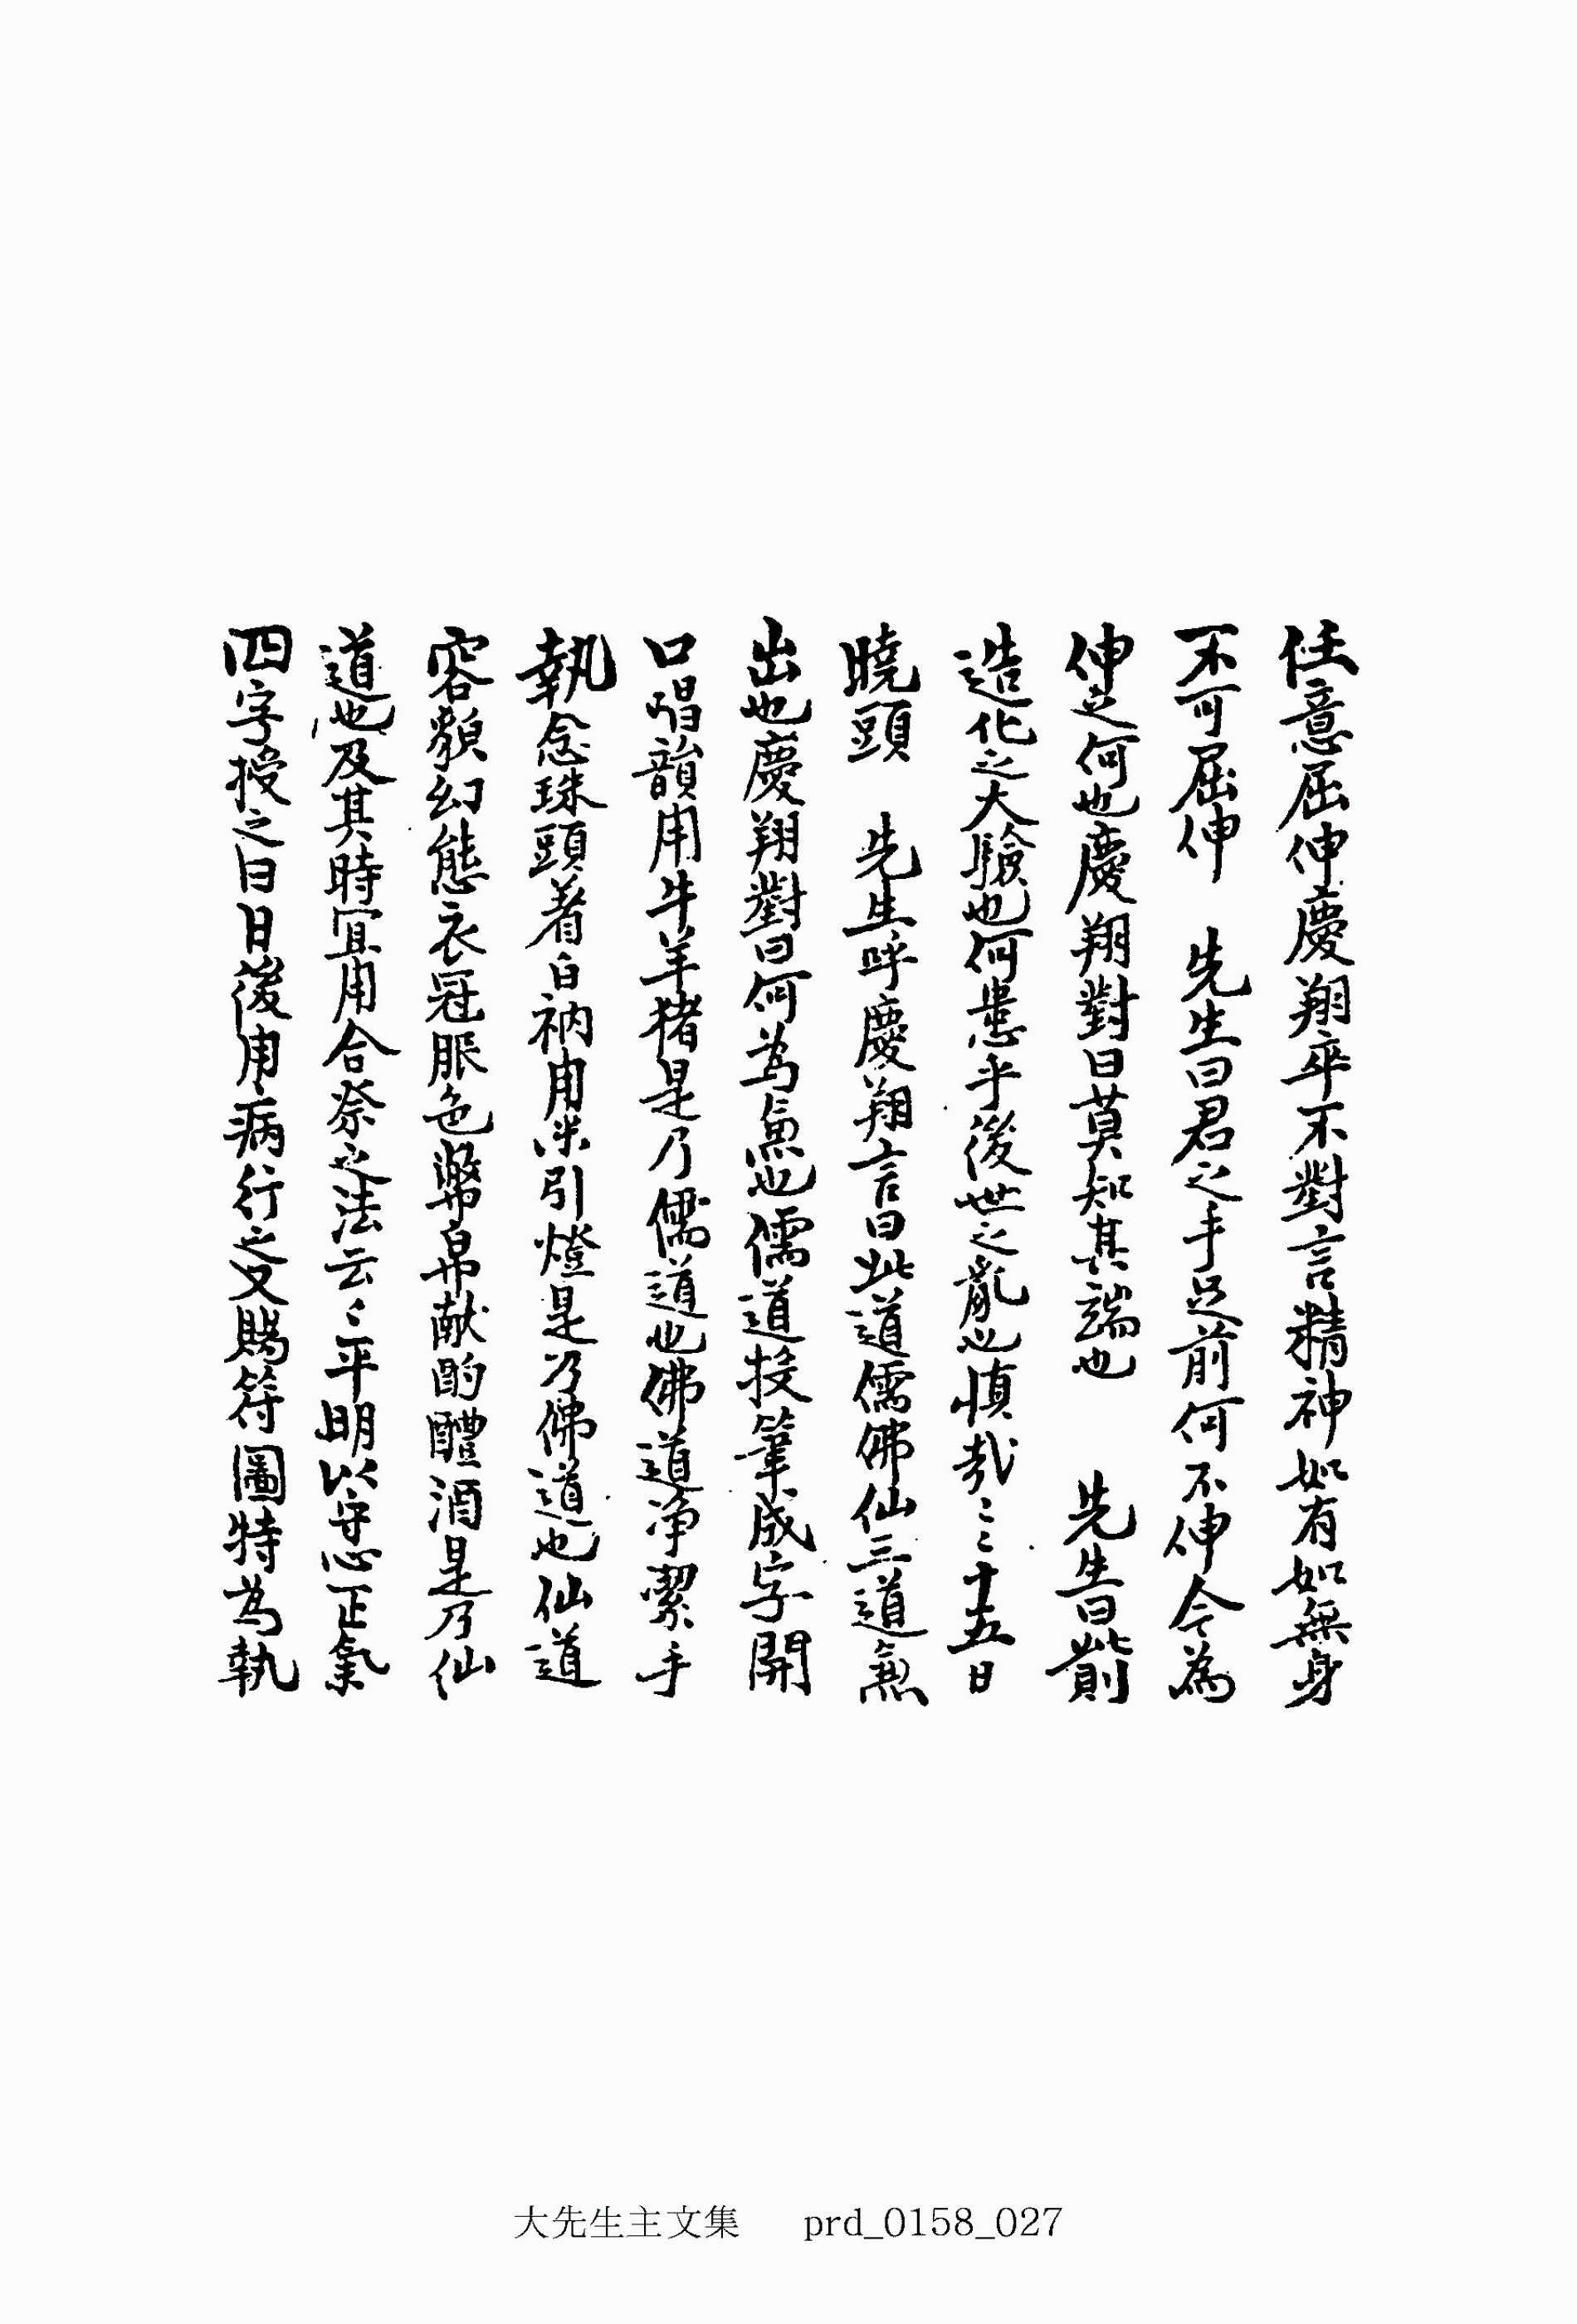 任意屈伸慶翔卒不對言精神如有如無身
不可屈伸　先生曰君之手足前何不伸令為
伸之何也慶翔對曰莫知其端也　先生曰此則
造化之大驗也何患乎後世之亂也愼哉〻〻十五日
曉頭　先生呼慶翔言曰此道儒佛仙三道兼
出也慶翔對曰何為兼也儒道投筆成字開
口唱韻用牛羊猪是乃儒道也佛道淨潔手
執念珠頭着白衲用米引燈是乃佛道也仙道
容貌幻態衣冠服色幣帛献酌醴酒是乃仙
道也及其時宜用合祭之法云〻平明以守心正氣
四字授之曰日後用病行之又賜符圖特為執
大先生主文集 prd_0158_027